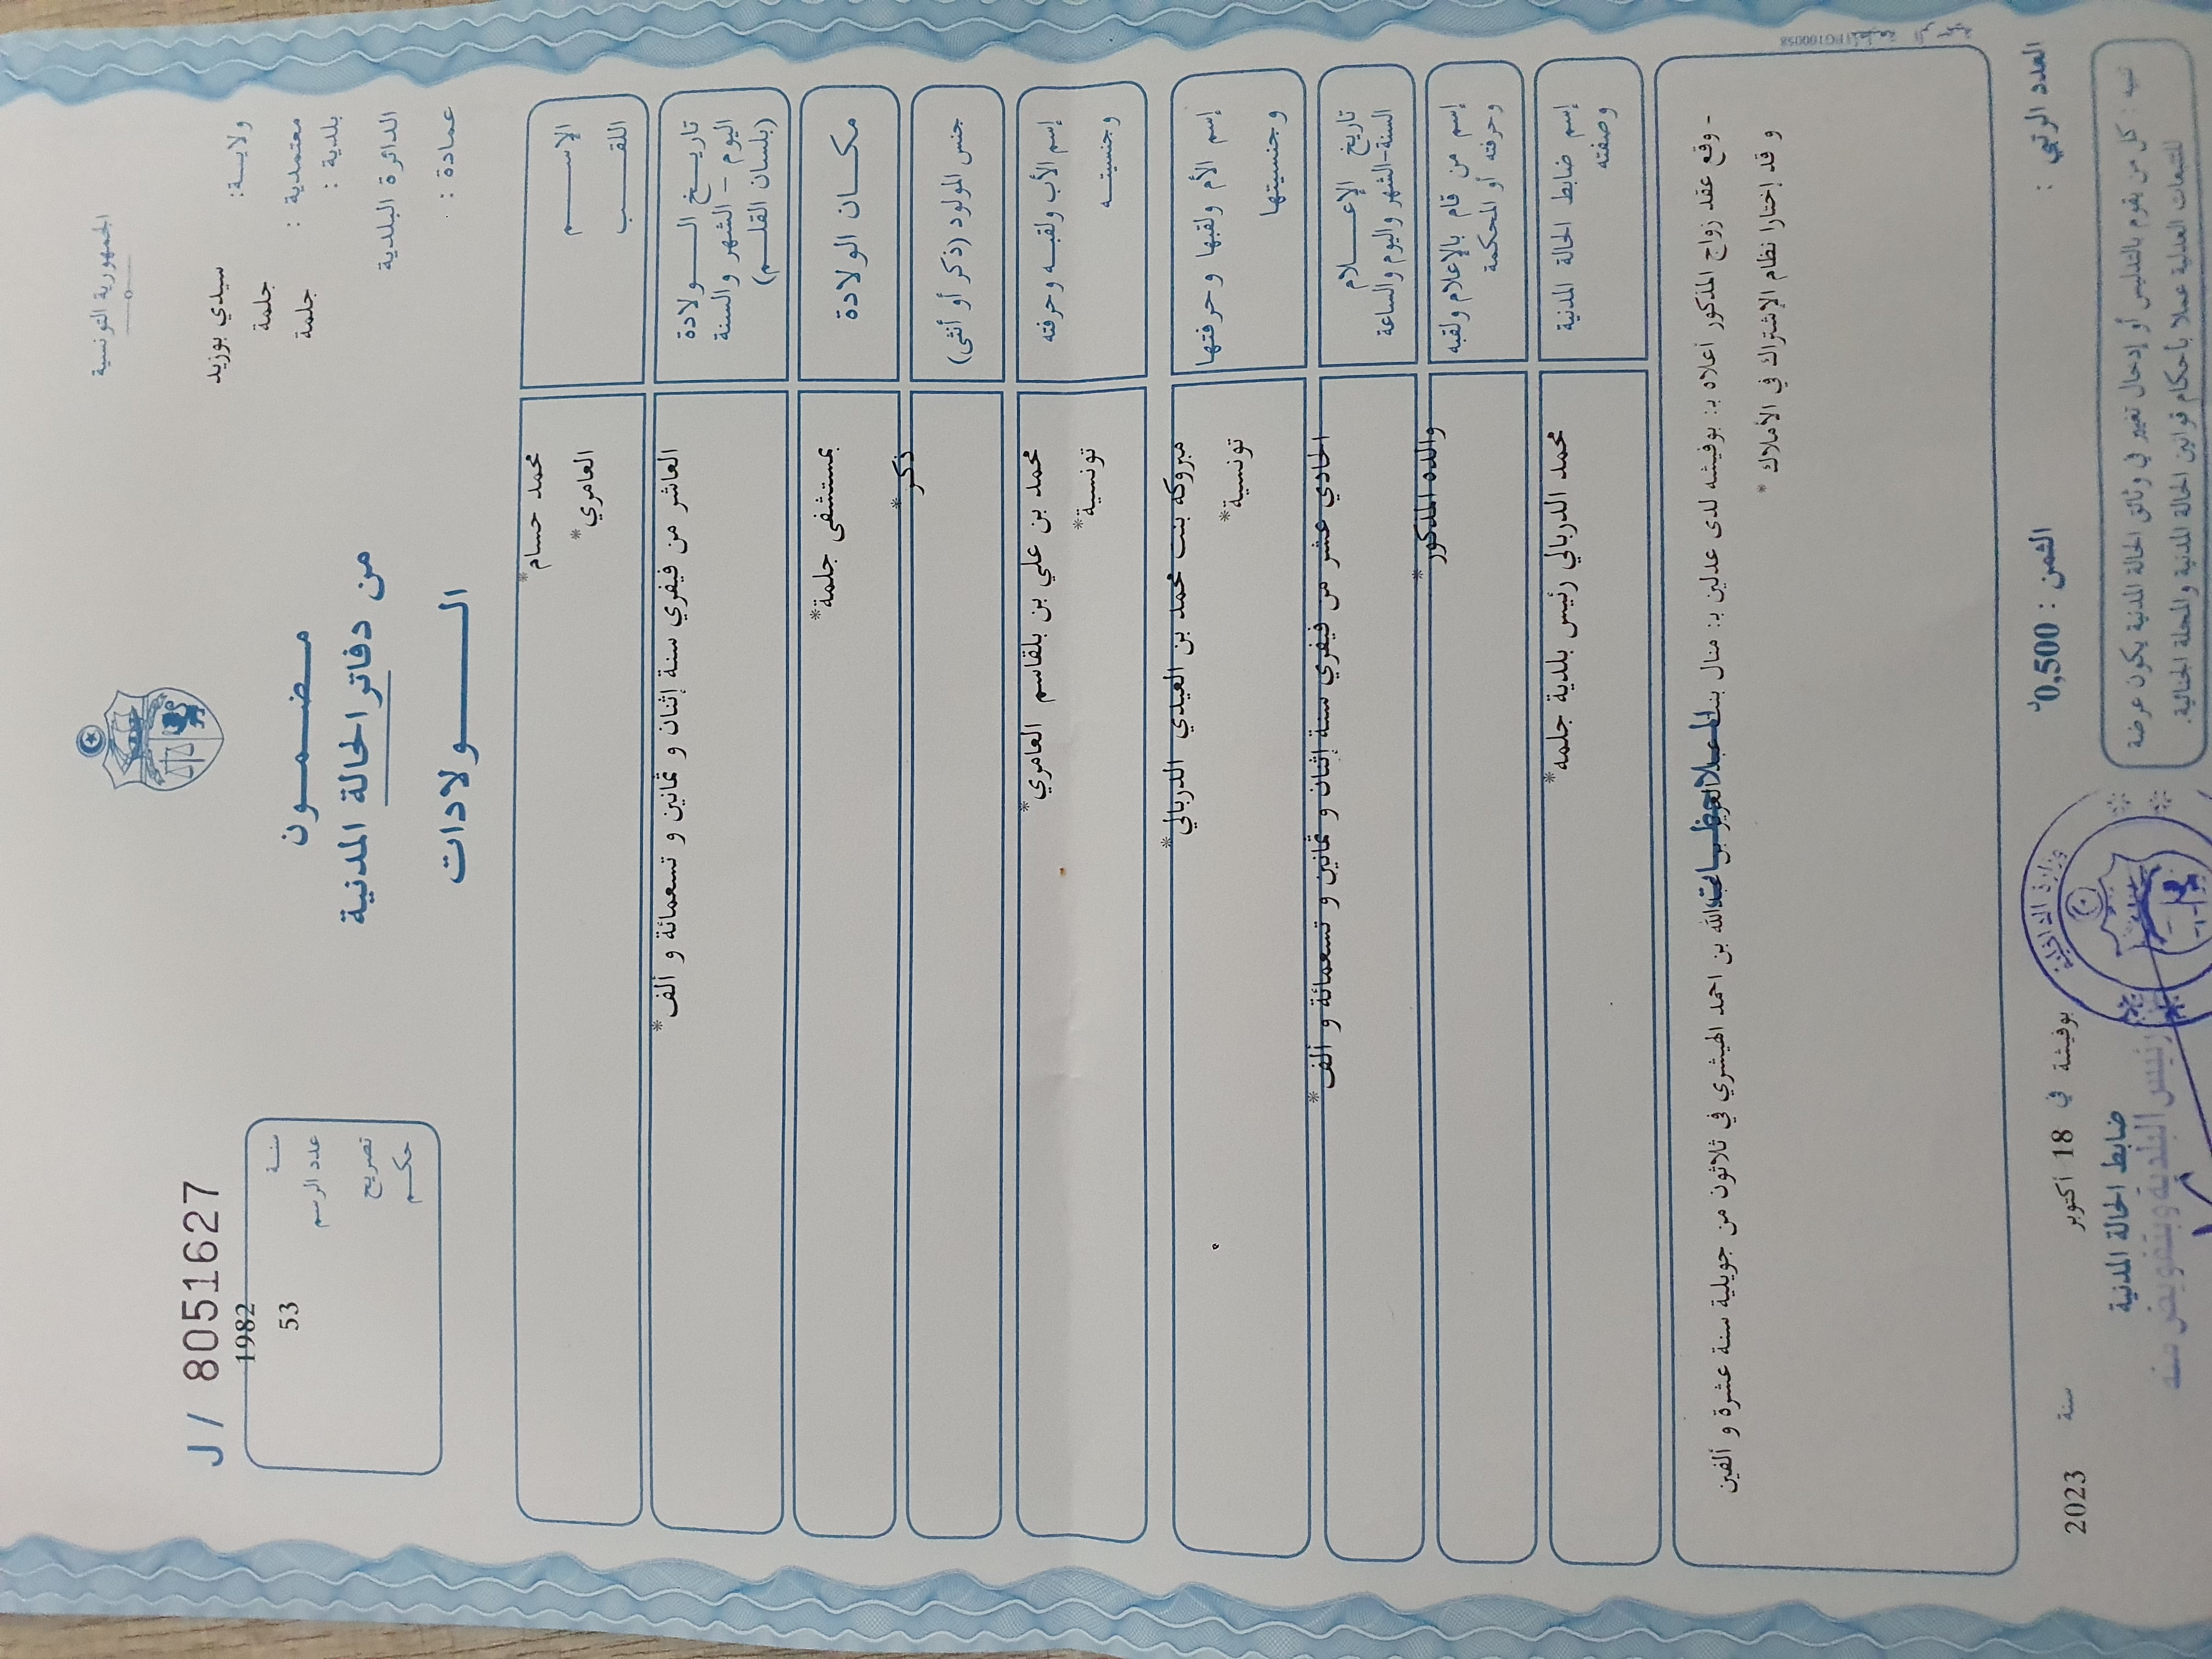 الجمهورية التونسية
ولايـــة: سيدي بوزيد
معتمدية : جلمة
بلدية : جلمة
الدائرة البلدية
عمادة :
مـــضـــمـــون
من دفاتر الحالة المدنية
الـــــــولادات
J / 8051627
سنــة 1982
عدد الرسم 53
تصريح
حكـــم
الإســـــــم محمد حسام*
اللقـــــب العامري*
تاريـــخ الـــــولادة
اليوم - الشهر والسنة
(بلسان القلـــم)
العاشر من فيفري سنة إثنان و ثمانين و تسعمائة و ألف*
مكـــان الولادة بمستشفى جلمة*
جنس المولود (ذكر أو أنثى) ذكر*
إسم الأب ولقبـــه وحرفته محمد بن علي بن بلقاسم العامري*
وجنسيتـــه تونسية*
إسم الأم ولقبها وحرفتها مبروكة بنت محمد بن العيدي الدربالي*
وجنسيتها تونسية*
تاريخ الإعـــلام
السنة-الشهر واليوم والساعة
الحادي عشر من فيفري سنة إثنان و ثمانين و تسعمائة و ألف*
إسم من قام بالإعلام ولقبه
وحرفته أو المحكمة
والده المذكور*
إسم ضابط الحالة المدنية
وصفته
محمد الدربالي رئيس بلدية جلمه*
الملاحظـــات
- وقع عقد زواج المذكور أعلاه بـ: بوفيشه لدى عدلين بـ: منال بنت بن احمد الهيشري في ثلاثون من جويلية سنة عشرة و ألفين
و قد إختارا نظام الإشتراك في الأملاك *
العدد الرتبي :
الثمن : 0,500د
بوفيشة في 18 أكتوبر سنة 2023
ضابط الحالة المدنية
رئيس البلدية وبتفويض منه
وزارة الداخلية
تنبيه : كل من يقوم بالتدليس أو إدخال تغيير في وثائق الحالة المدنية يكون عرضة
للتتبعات العدلية عملا بأحكام قوانين الحالة المدنية والمجلة الجنائية.